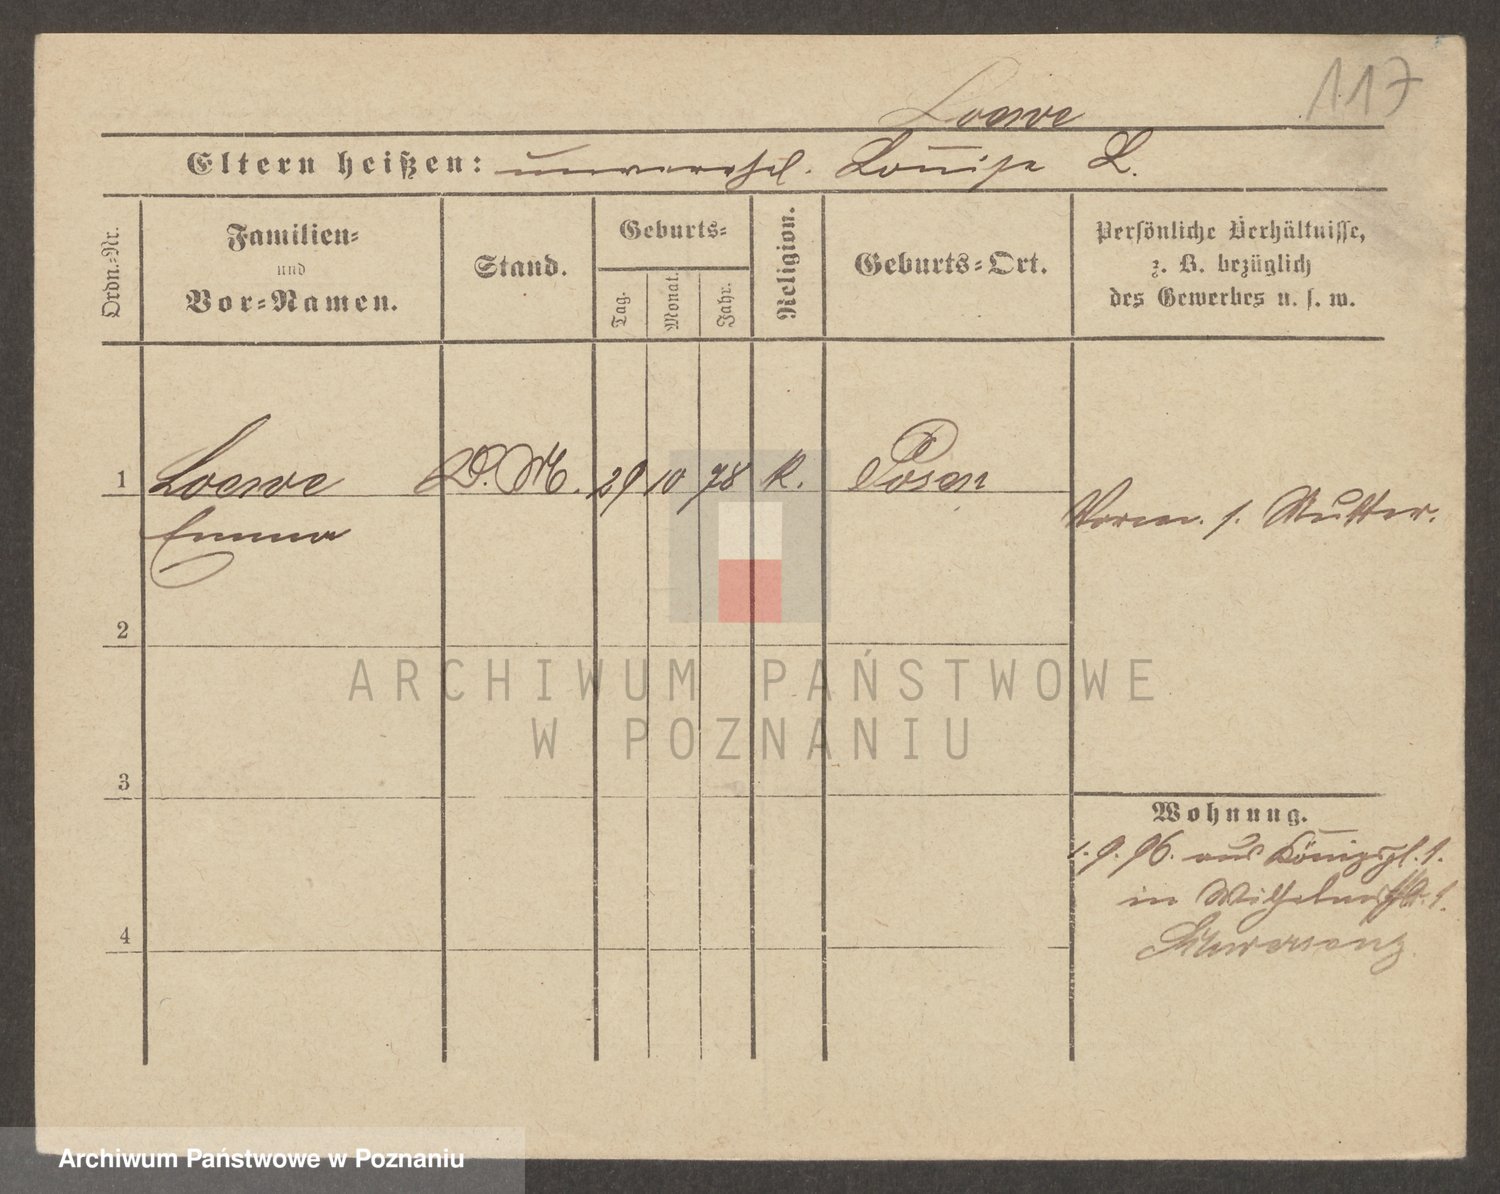 117
Loewe
Eltern heißen: unverehel. Louise L.
Ordn.-Nr.
Familien-
und
Vor-Namen.
Stand.
Geburts-
Tag.
Monat.
Jahr.
Religion.
Geburts-Ort.
Persönliche Verhältnisse,
z. B. bezüglich
des Gewerbes u. s. w.
1 Loewe D. M. 29 10 78 K. Posen
Emma
Vorm. s. Mutter.
2
3
4
Wohnung.
1.9.96. aus Königspl. 1.
in Wilhelmstr. 1.
Schwersenz
ARCHIWUM PAŃSTWOWE
W POZNANIU
Archiwum Państwowe w Poznaniu